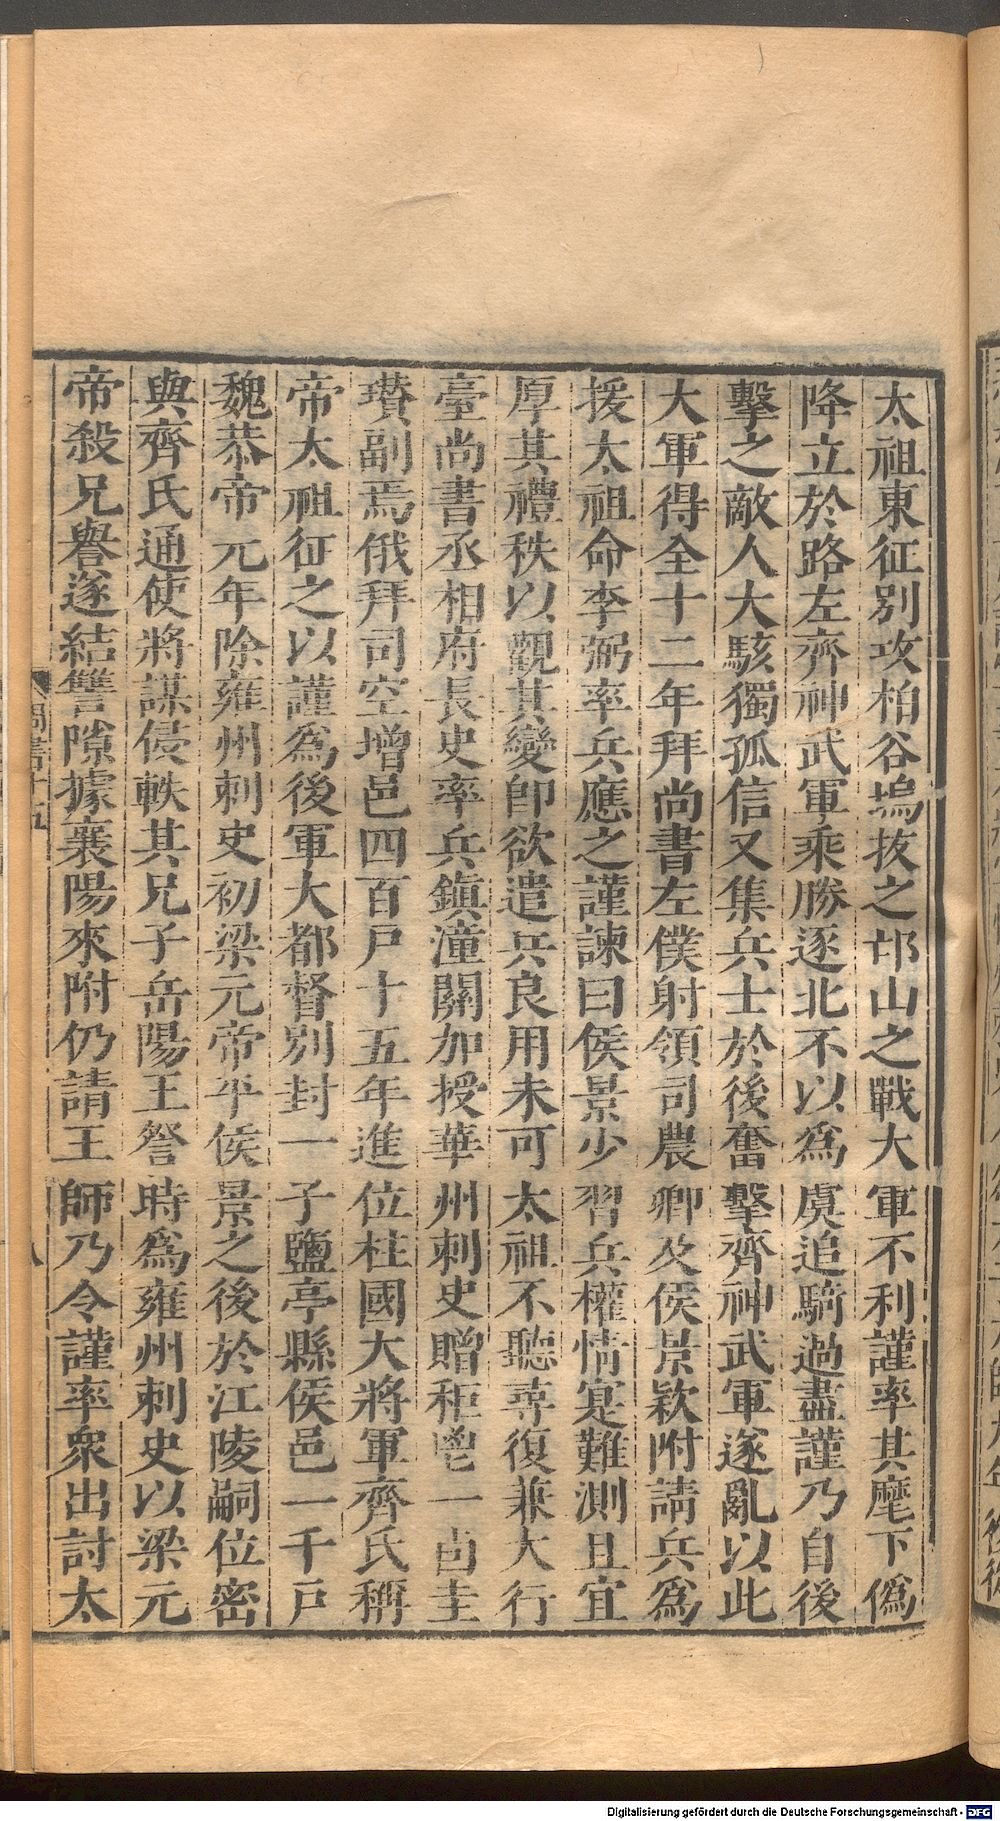 太祖東征別攻柏谷塢拔之邙山之戰大軍不利謹率其麾下僞
降立於路左齊神武軍乘勝逐北不以爲虞追騎過盡謹乃自後
擊之敵人大駭獨孤信又集兵士於後奮擊齊神武軍遂亂以此
大軍得全十二年拜尚書左僕射領司農卿及侯景欵附請兵爲
援太祖命李弼率兵應之謹諫曰侯景少習兵權情寔難測且宜
厚其禮秩以觀其變卽欲遣兵良用未可太祖不聽尋復兼大行
臺尚書丞相府長史率兵鎮潼關加授華州刺史贈秬鬯一卣圭
瓚副焉俄拜司空增邑四百戸十五年進位柱國大將軍齊氏稱
帝太祖征之以謹爲後軍大都督別封一子鹽亭縣侯邑一千戸
魏恭帝元年除雍州刺史初梁元帝平侯景之後於江陵嗣位密
與齊氏通使將謀侵軼其兄子岳陽王詧時爲雍州刺史以梁元
帝殺兄譽遂結讐隙據襄陽來附仍請王師乃令謹率衆出討太
周書十五
八
Digitalisierung gefördert durch die Deutsche Forschungsgemeinschaft - DFG